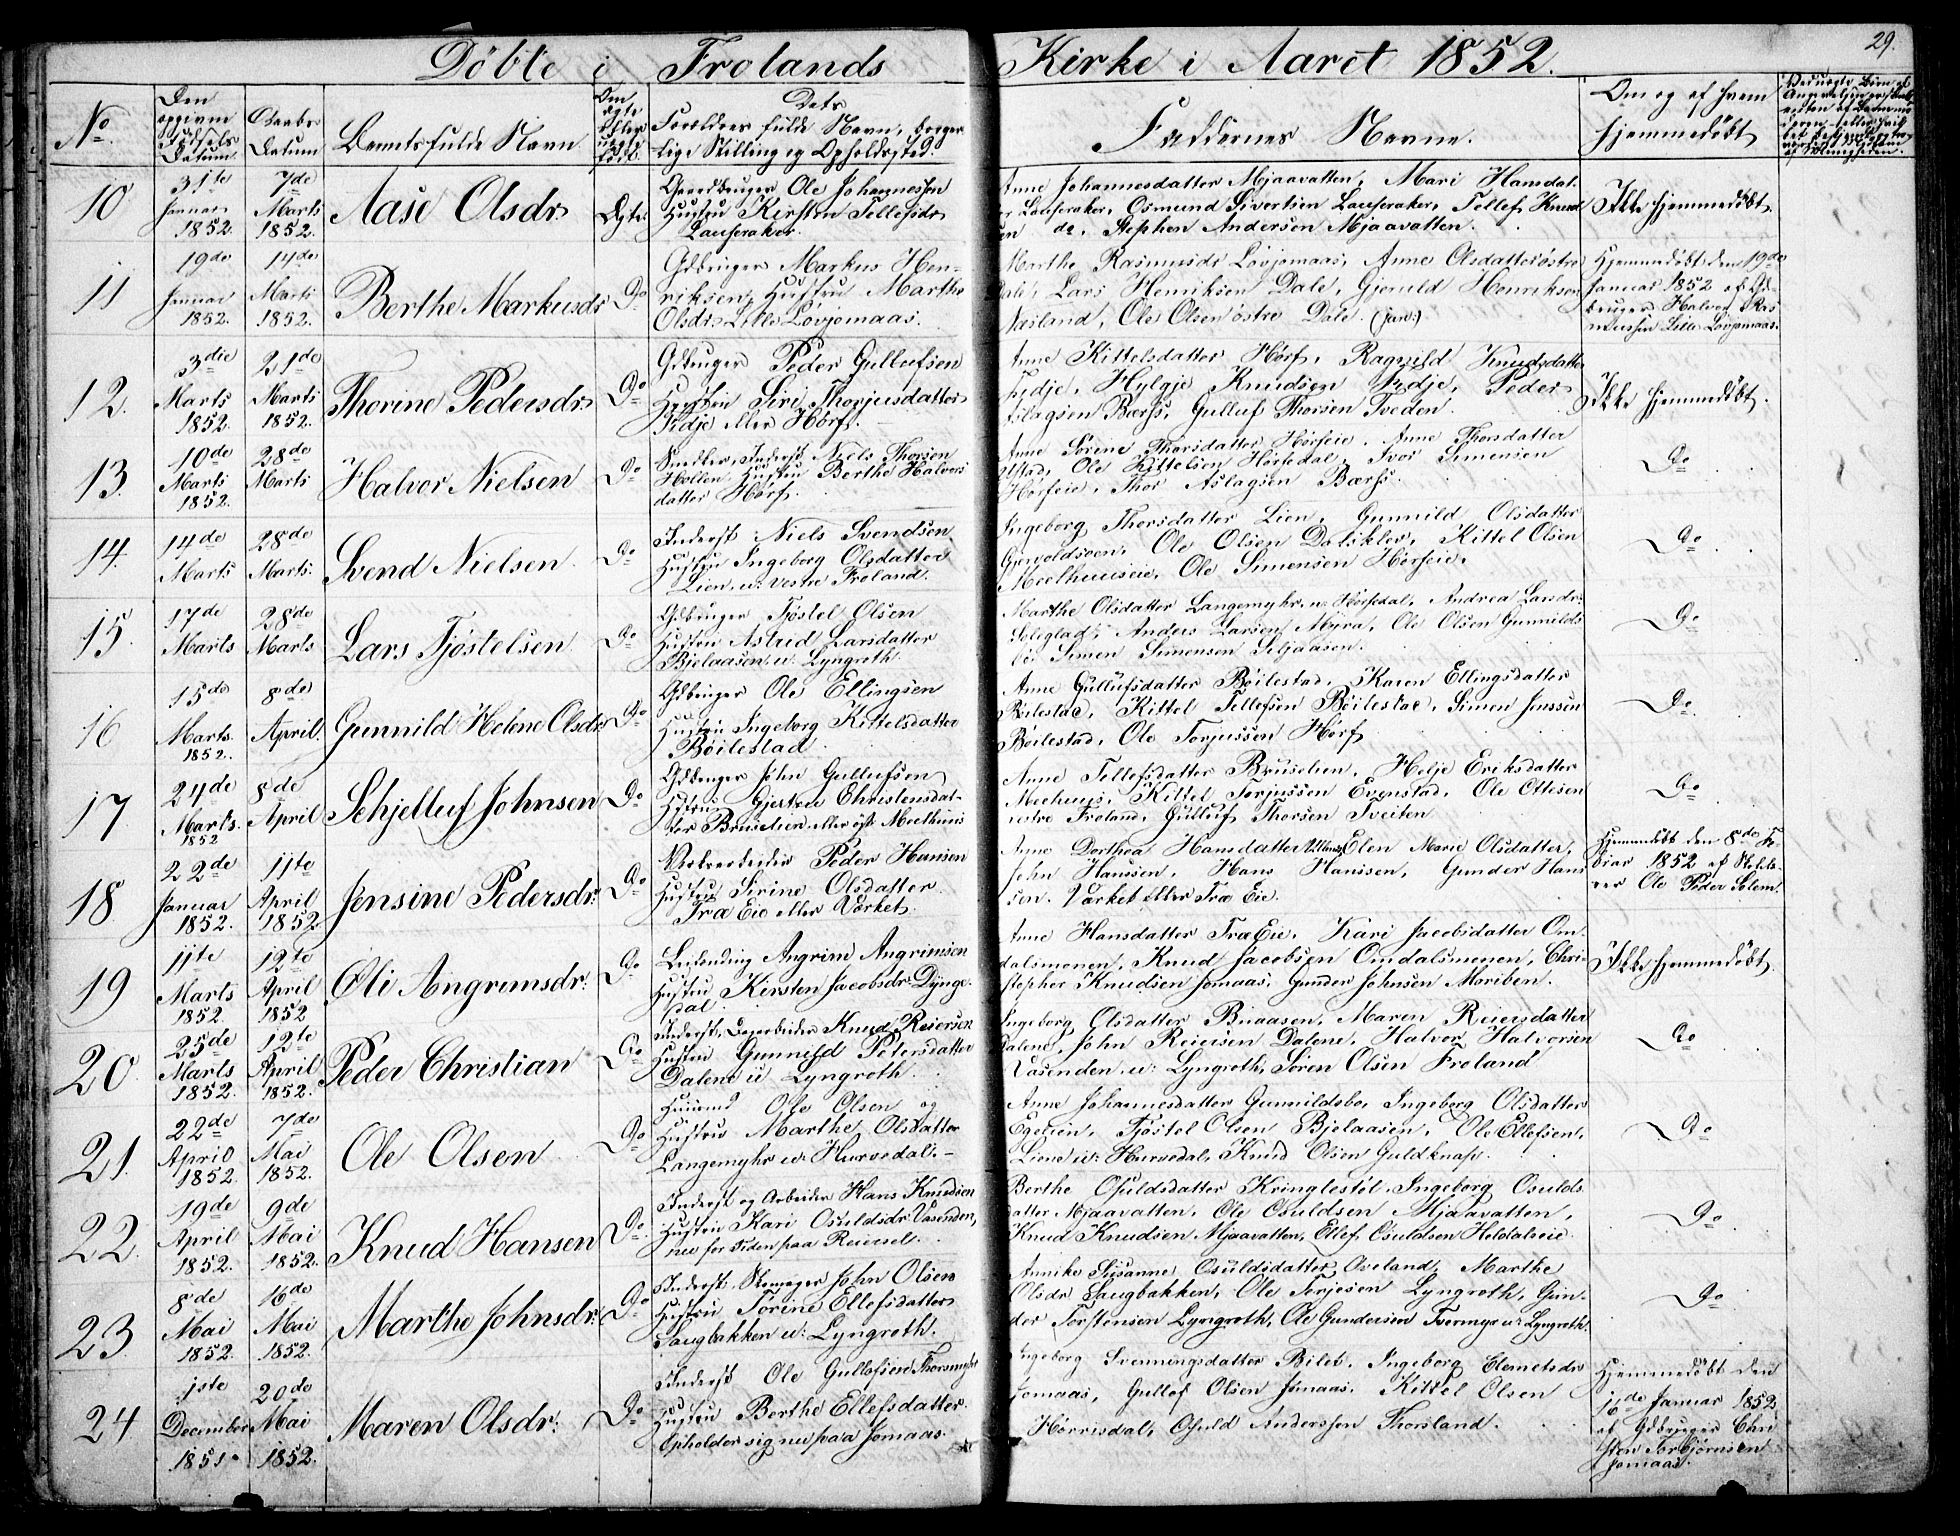 Döbte i Frolands Kirke i Aaret 1852.
29.
No.
Den opgivne Födsels Datum.
Daabs Datum
Barnets fulde Navn
Om ægte eller uægte födt.
Dets Forældres fulde Navn, borgerlige Stilling og Opholdssted.
Faddernes Navne.
Om og af hvem hjemmedöbt
10
31te Januar 1852.
7de Marts 1852.
Aase Olsdr
Ægte
Gaardbruger Ole Johannessen
Hustru Kirsten Tellefsdr
Lauveraker.
Anne Johannesdatter Mjaavatten, Mari Hansdat.
Lauveraker, Osmund Sivertsen Lauveraker, Tellef Knud
sen do, Stephen Andersen Mjaavatten.
Ikke hjemmedöbt.
11
19de Januar 1852.
14de Marts 1852.
Berthe Markusdr
Do
Gdbruger Markus Hen-
riksen, Hustru Marthe
Olsdr Lille Lövjomaas.
Marthe Rasmusdr Lövjomaas, Anne Olsdatter östre
Dale, Lars Henriksen Dale, Gjeruld Henriksen
Næsland, Ole Olsen östre Dale. (jun:)
Hjemmedöbt den 19de
Januar 1852 af Gd-
bruger Halvor Ras
mussen Lille Lövjomaas.
12.
3die Marts 1852.
21de Marts 1852.
Thorine Pedersdr
Do
Gdbruger Peder Gullufsen
Hustru Siri Thorjusdatter
Fidje eller Hörf.
Anne Kittelsdatter Hörf, Ragnild Knudsdatter
Fidje, Hylgje Knudsen Fidje, Peder
Aslagsen Bærfs, Gulluf Thorsen Tveden.
Ikke hjemmedöbt.
13.
10de Marts 1852.
28de Marts
Halvor Nielsen
Do
Snedker, Inderst Niels Thorsen
Hollen Hustru Berthe Halvors
datter Hörf.
Anne Sörine Thorsdatter Hörfeie, Anne Thorsdatter
Ole Kittelsen Hörfedal, Ivor Simensen
Hörfeie, Thor Aslagsen Bærfs.
Do
14.
14de Marts
28de Marts.
Svend Nielsen
Do
Inderst Niels Svendsen
Hustru Ingeborg Olsdatter
Lien, u: Vestre Froland.
Ingeborg Thorsdatter Lien, Gunnild Olsdatter
Ole Olsen Dalsklev, Kittel Olsen
Meelhuuseie, Ole Simensen Hörfeie.
Do
15.
17de Marts
28de Marts
Lars Tjöstelsen
Do
Gdbruger Tjöstel Olsen
Hustru Astrid Larsdatter
Bjelaasen u: Lyngroth.
Marthe Olsdatter Langemyhr u: Hörfedal, Andrea Larsdr:
Soleglad, Anders Larsen Myra, Ole Olsen Gunnilds
bo, Simen Simensen Seljaasen.
Do
16
15de Marts. 1852.
8de April.
Gunnild Helene Olsdr
Do
Gdbruger Ole Ellingsen
Hustru Ingeborg Kittelsdatter
Böilestad
Anne Gullufsdatter Böilestad, Karen Ellingsdatter
Böilestad, Kittel Tellefsen Böilestad, Simen Jenssen
Böilestad, Ole Torjussen Hörf
Do
17
24de Marts. 1852
8de April
Schjelluf Johnsen
Do
Gdbruger John Gullufsen
Hustru Gjertru Christensdat-
ter Bruselien eller öst Meelhuus
Anne Tellefsdatter Bruselien, Helje Eriksdatter
Meehuus, Kittel Torjussen Evenstad, Ole Ottesen
vestre Froland, Gulluf Thorsen Tveiten
Do
18
22de Januar 1852.
11te April 1852
Jensine Pedersdr.
Do
Værkarbeider Peder Hansen
Hustru Sirine Olsdatter
Træ Eie eller Værket.
Anne Dorthea Hansdatter Elen Marie Olsdatter,
John Hanssen, Hans Hanssen, Gunder Hans
sen. Værket eller Træ Eie.
Hjemmedöbt den 8de Fe-
bruar 1852 af Skole-
lærer Ole Peder Solem.
19
11te Marts 1852.
12te April 1852
Oli Angrimsdr:
Do
Leilending Angrim Angrimsen
Hustru Kirsten Jacobsdr Dynge
dal.
Anne Hansdatter Træ Eie, Kari Jacobsdatter Om-
dalsmonen, Knud Jacobsen Omdalsmonen, Chri-
stopher Knudsen Jomaas, Gunder Johnsen Moriben.
Ikke hjemmedöbt.
20
25de Marts 1852.
12te April 1852.
Peder Christian
Do
Inderst, Knud Reiersen
Hustru Gunnild Petersdatter
Dalene u Lyngroth.
Ingeborg Olsdatter Buaasen, Maren Reiersdatter
Dalene, John Reiersen Dalene, Halvor Halvorsen
Vasenden u: Lyngroth, Sören Olsen Froland
Do
21.
22de April 1852.
7de Mai 1852.
Ole Olsen
Do
Huusmd Ole Olsen og
Hustru Marthe Olsdatter
Langemyhr u: Hurvedal.
Anne Johannesdatter Gunnildsbo, Ingeborg Olsdatter
Egelien, Tjöstel Olsen Bjelaasen, Ole Ellefsen,
Liene u: Hurvedal, Knud Olsen Guldknap.
Do
22.
19de April 1852.
9de Mai 1852.
Knud Hansen
Do
Inderst og Arbeider Hans Knudsen
Hustru Kari Osuldsdr Vasenden,
nu for Tiden paa Reiersel.
Berthe Osuldsdatter Kringlestöl, Ingeborg Osulds
datter Mjaavatten, Ole Osuldsen Mjaavatten,
Knud Knudsen Mjaavatten, Ellef Osuldsen Heldalseie
Do
23
8de Mai 1852.
16de Mai 1852.
Marthe Johnsdr:
Do
Inderst, Skomager John Olsen
Hustru Törine Ellefsdatter
Saugbakken u: Lyngroth.
Annike Susanne Osuldsdatter Oveland, Marthe
Olsdr Saugbakken, Ole Torjesen Lyngroth, Gun-
der Torstensen Lyngroth, Ole Gundersen Tvermyr u: Lyngroth.
Do
24
1ste December 1851.
20de Mai 1852.
Maren Olsdr:
Do
Inderst Ole Gullofsen Thorsmyhr
Hustru Berthe Ellefsdatter.
Opholder sig nu paa Jomaas.
Ingeborg Svenningsdatter Bilet, Ingeborg Clemetsdr
Jomaas, Gullof Olsen Jomaas, Kittel Olsen
Hörrisdal, Osuld Anderssen Thorsland.
Hjemmedöbt den
16de Januar 1852
af Gdbruger Chri
sten Torbjörnsen
Jomaas.